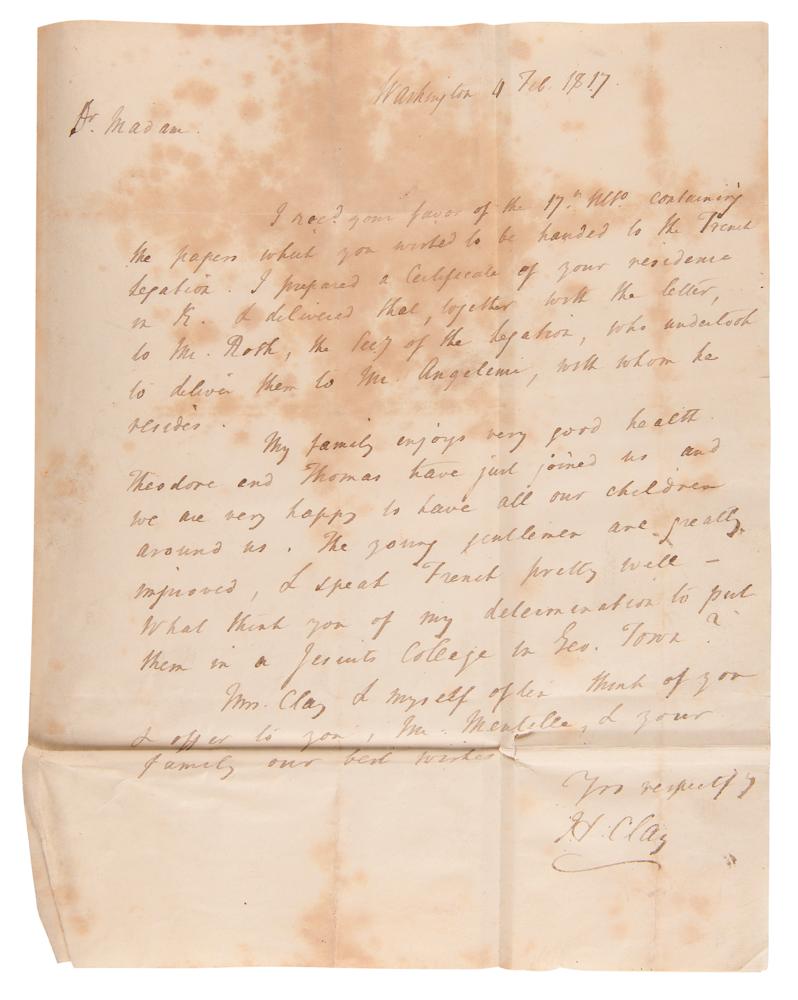 Washington 4 Feb. 1817.
Dr. Madam.
I recd. your favor of the 17th Ulto. containing
the papers which you wished to be handed to the French
legation. I prepared a Certificate of your residence
in K. & delivered that, together with the letter,
to Mr. Roth, the Secy of the legation, who undertook
to deliver them to Mr. Angelini, with whom he
resides.
My family enjoys very good health.
Theodore and Thomas have just joined us and
we are very happy to have all our children
around us. The young gentlemen are greatly
improved, & speak French pretty well —
What think you of my determination to put
them in a Jesuits College in Geo. Town?
Mrs. Clay & myself often think of you
& offer to you, Mr. Mentelle, & your
family our best wishes
Yrs respectfy
H. Clay